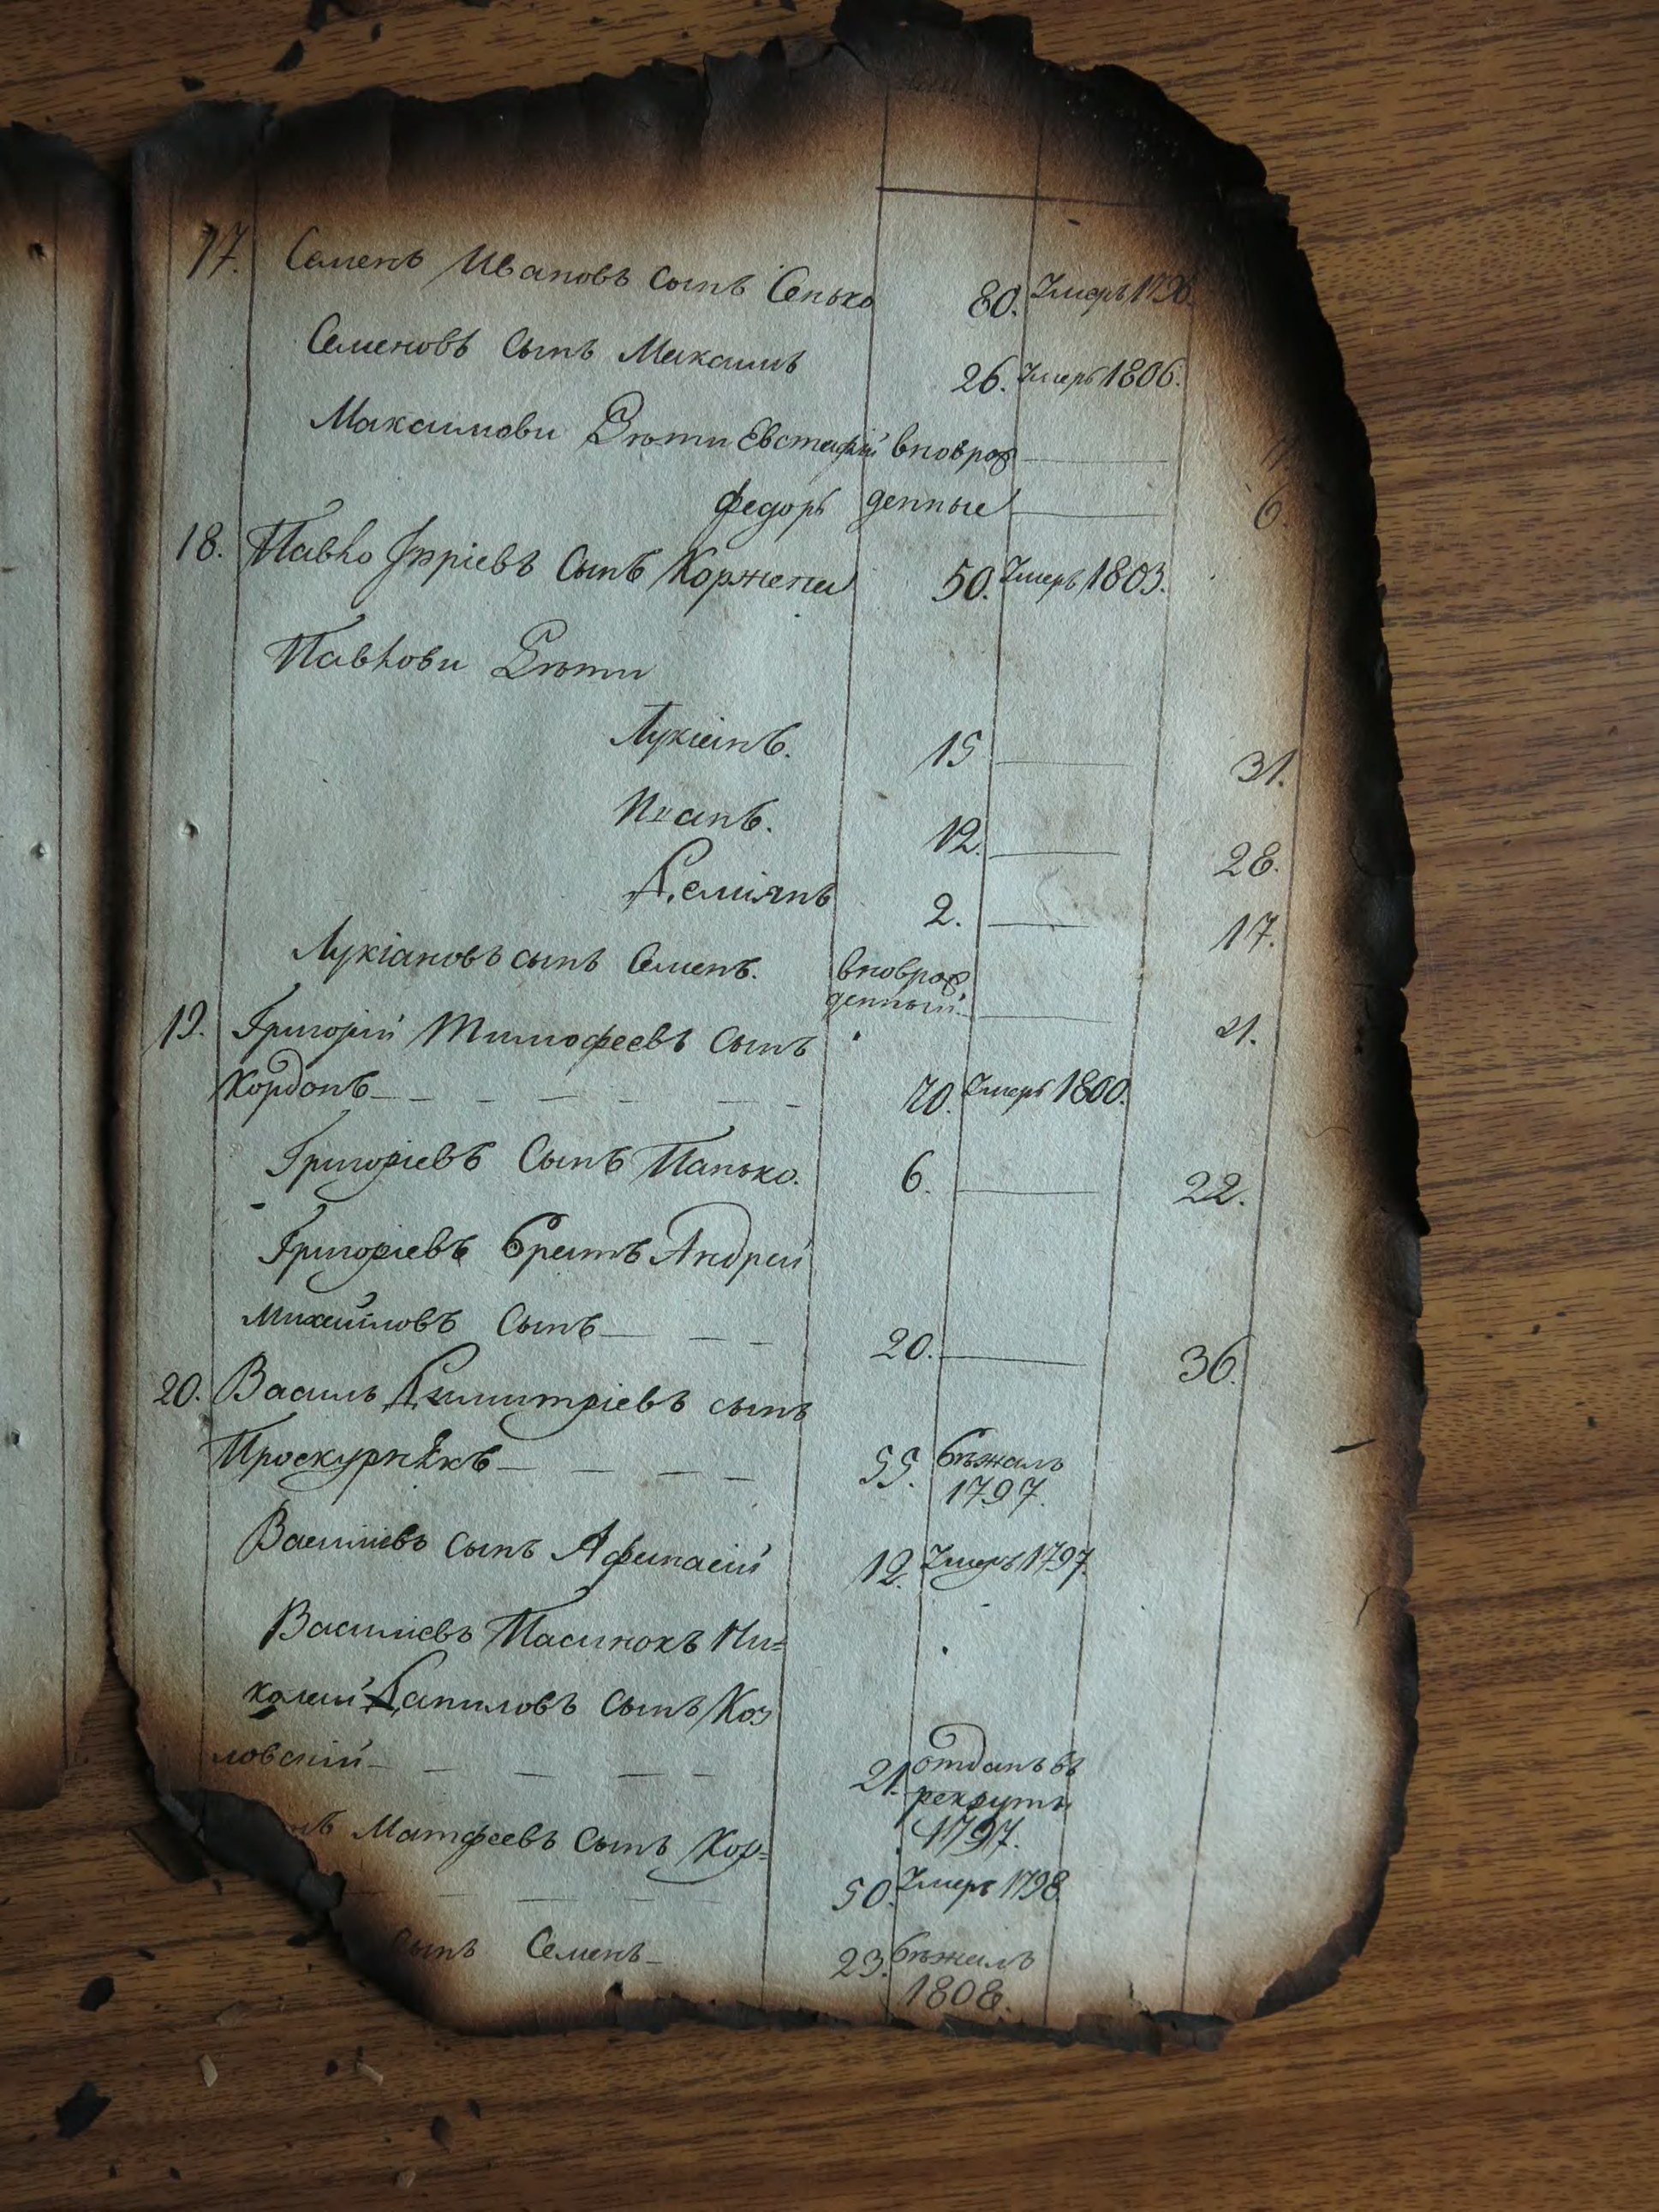 17. Семенъ Ивановъ сынъ Сенько 80. Умеръ 1796.
Семеновъ сынъ Максимъ 26. Умеръ 1806.
Максимови Дѣти Евстафій вноврож
Федоръ денные 6.
18. Павко Юріевъ сынъ Коржена 50. Умеръ 1803.
Павкови Дѣти
Лукіанъ. 15 31.
Иванъ. 12. 28.
Деміянъ 2. 17.
Лукіановъ сынъ Семенъ. вноврож
денный 1.
19. Григорій Тимофеевъ сынъ
Кордонъ 70. Умеръ 1800.
Григоріевъ сынъ Панько. 6. 22.
Григоріевъ братъ Андрей
Михайловъ сынъ 20. 36.
20. Василь Димитріевъ сынъ
Проскурнѣкъ 55. бѣжалъ
1797.
Василіевъ сынъ Афанасій 12. Умеръ 1797.
Василіевъ Пасинокъ Ни=
колай Даниловъ сынъ Коз
ловскій 21. отданъ въ
рекруты
1797.
Матфеевъ сынъ Кор=
50. Умеръ 1798
сынъ Семенъ 23. бѣжалъ
1808.